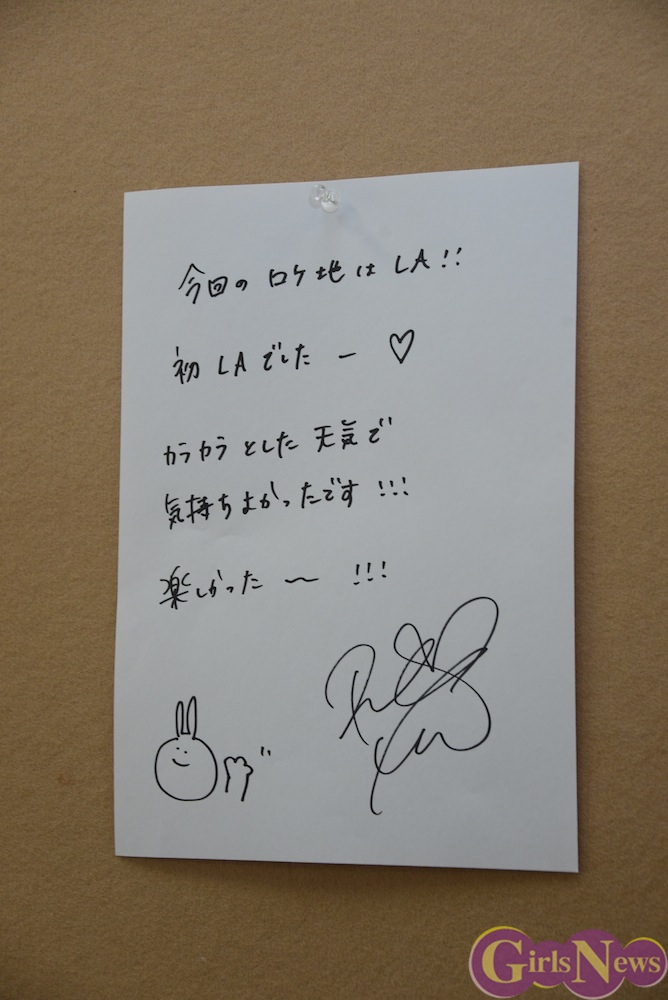 今回のロケ地は LA!!
初LAでしたー♡
カラカラとした天気で
気持ちよかったです!!!
楽しかった〜!!!
GirlsNews